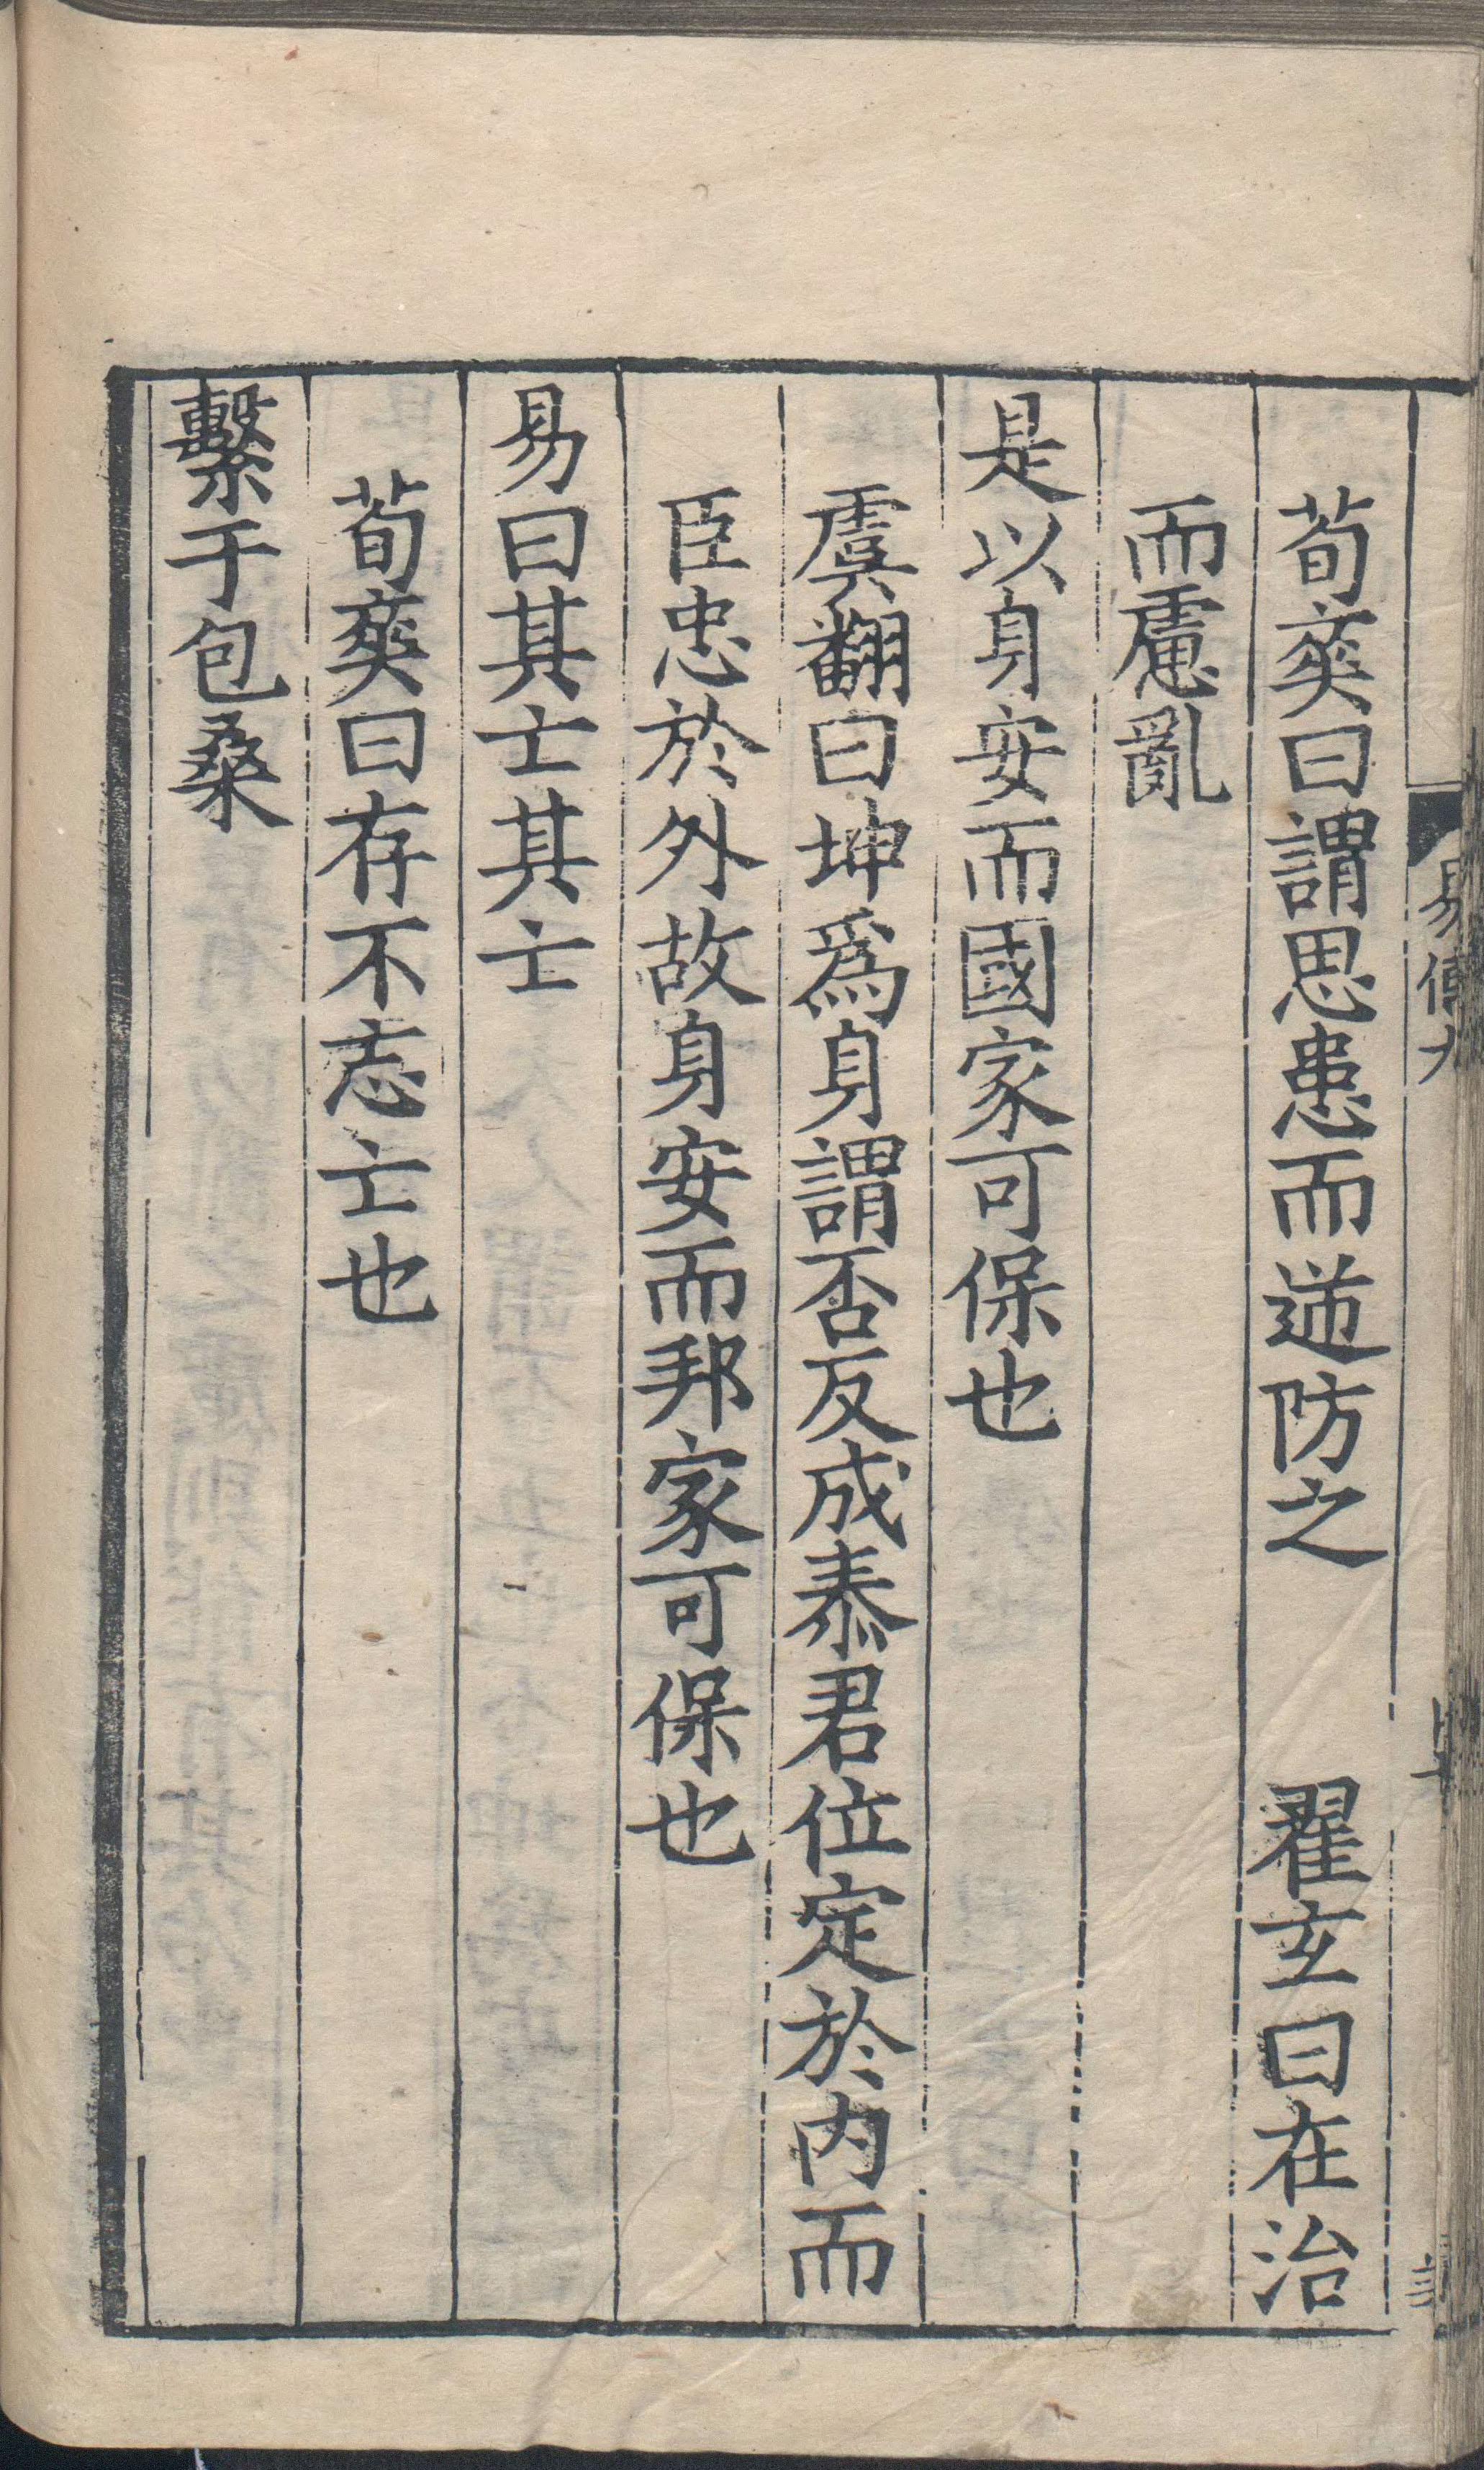 荀爽曰謂思患而逆防之　翟玄曰在治
而慮亂
是以身安而國家可保也
虞翻曰坤爲身謂否反成泰君位定於內而
臣忠於外故身安而邦家可保也
易曰其亡其亡
荀爽曰存不忘亡也
繫于包桑
易傳